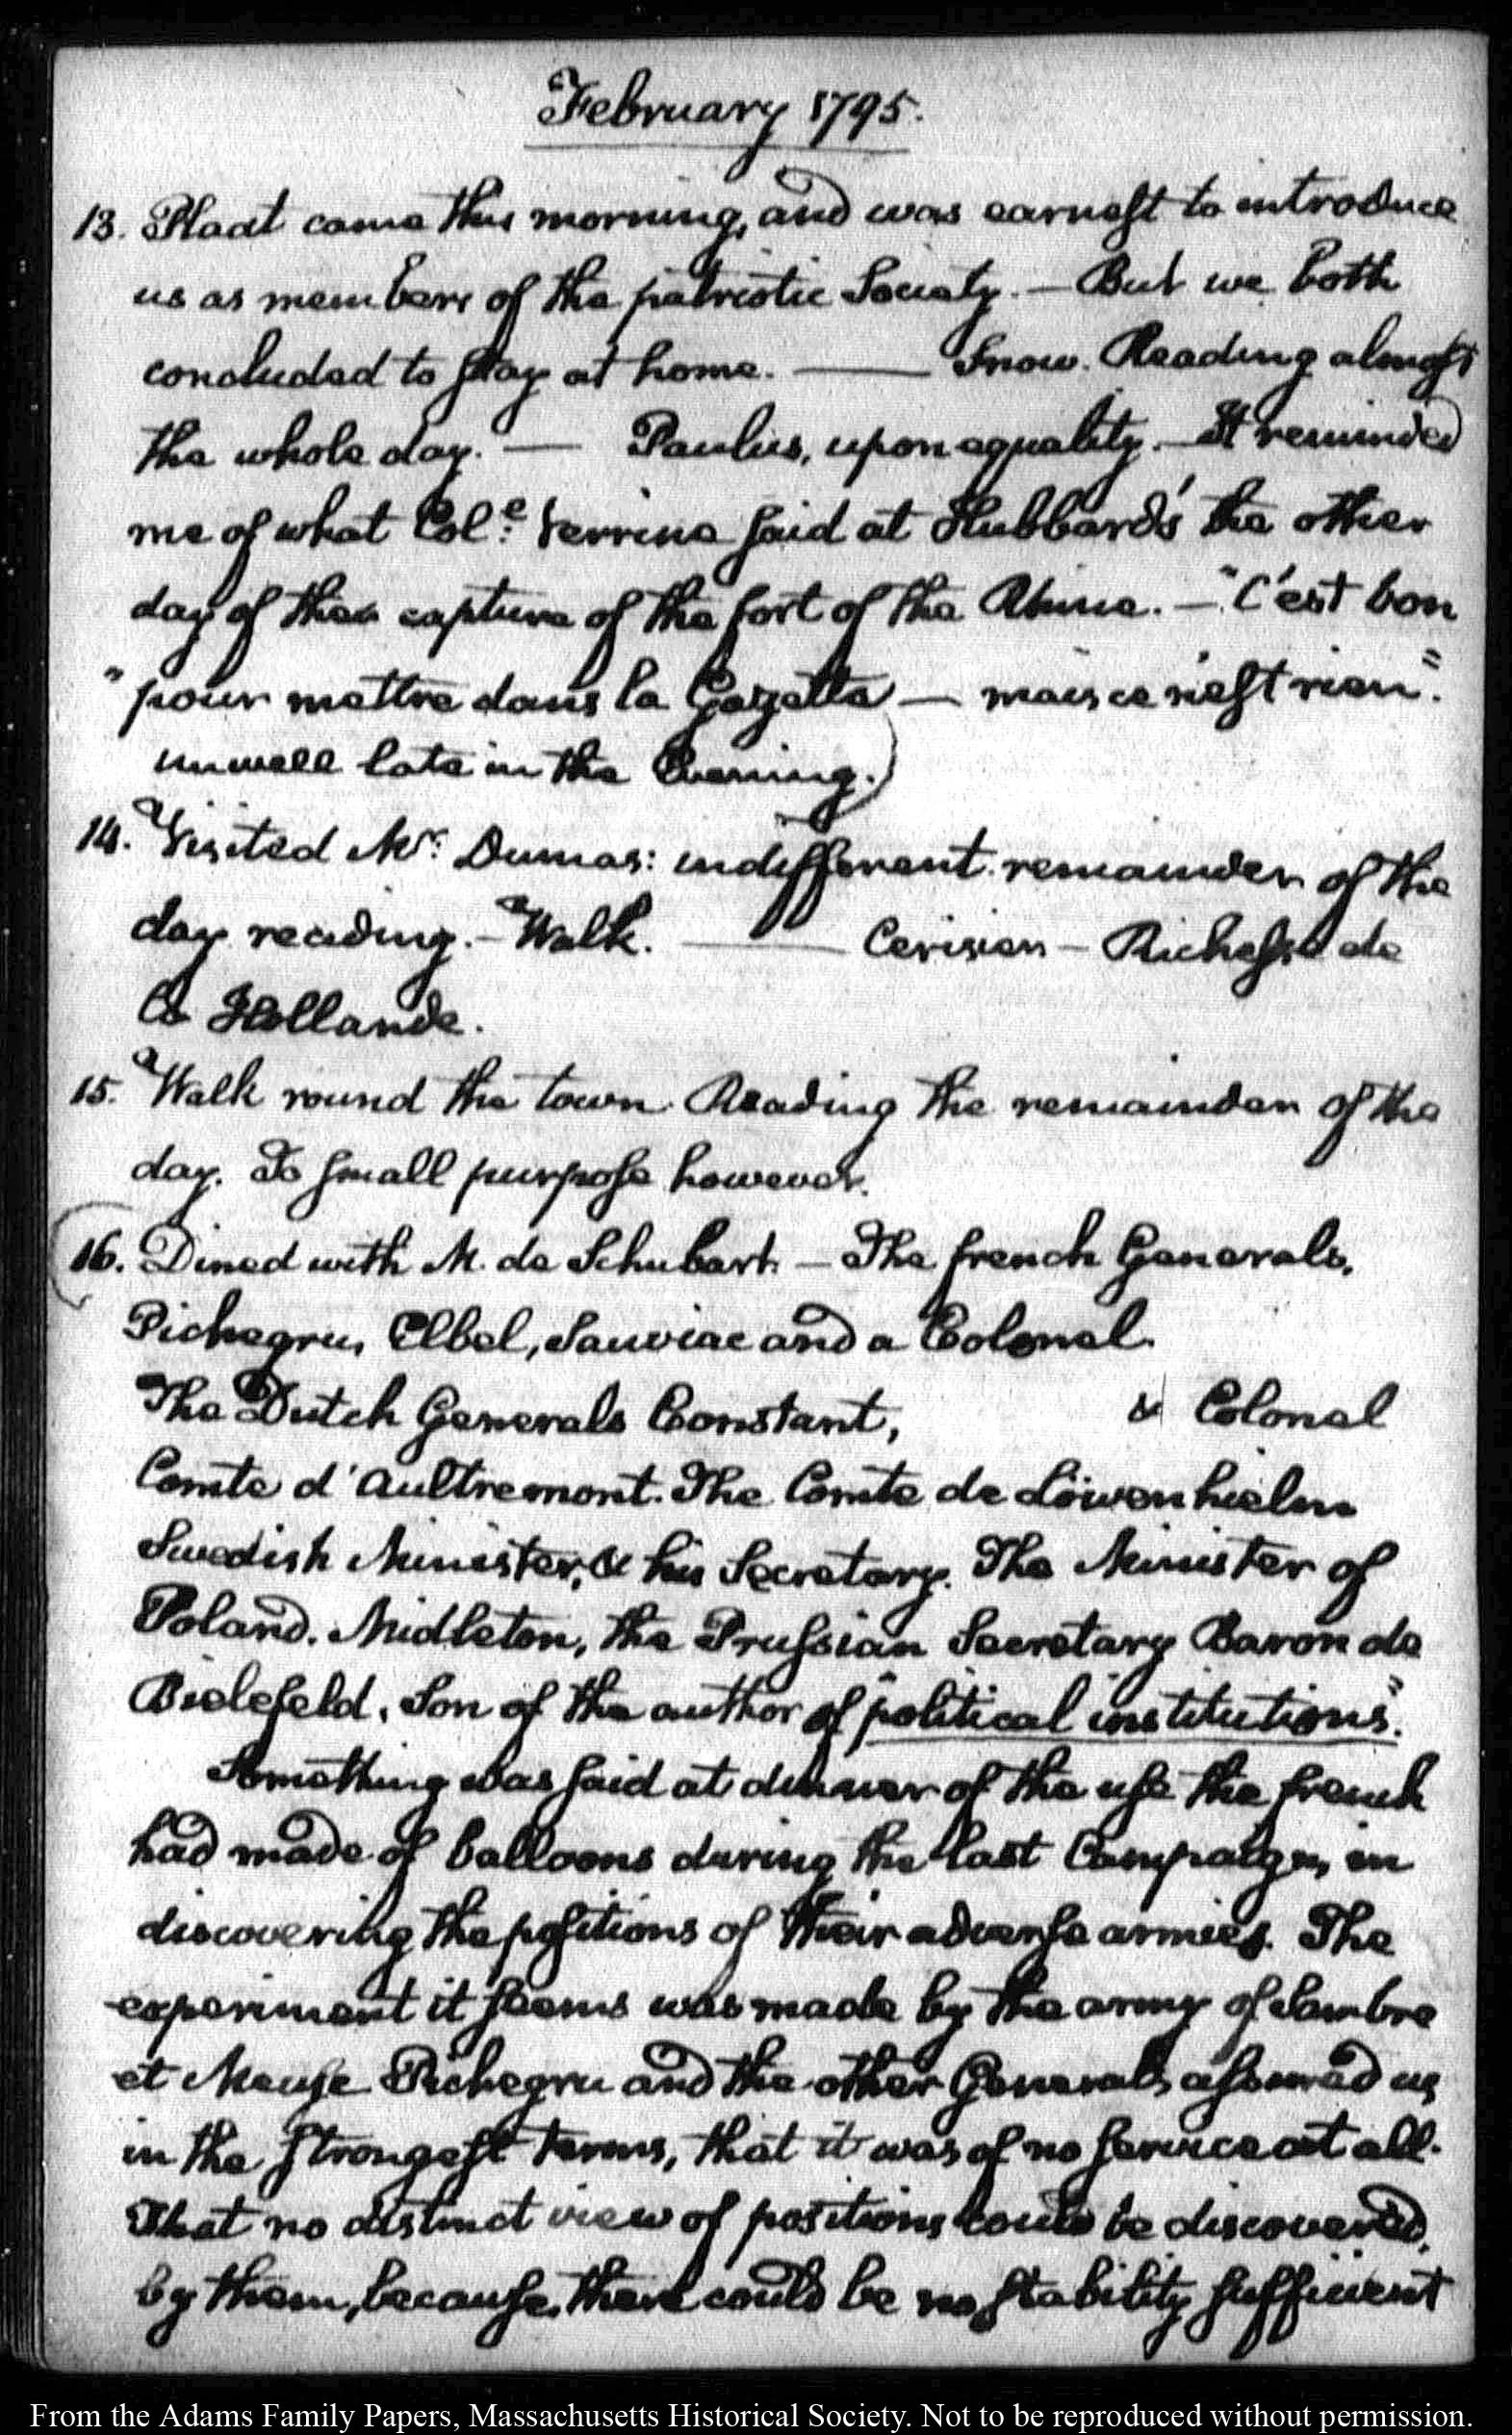 February 1795.
13. Plaat came this morning, and was earnest to introduce
us as members of the patriotic Society. — But we both
concluded to stay at home. — Snow. Reading almost
the whole day. — Paulus, upon equality. — It reminded
me of what Col.e said at Hubbard's the other
day of the capture of the fort of the Rhine. — "C'est bon
"pour mettre dans la Gazette — mais ce n'est rien".
unwell late in the Evening.
14. Visited Mr. Dumas: indifferent. remainder of the
day reading. — Walk. — Cerisier — Richesse de
la Hollande.
15. Walk round the town. Reading the remainder of the
day. To small purpose however.
16. Dined with M. de Schubart. — The french Generals,
Pichegru, Elbel, Sauviac and a Colonel.
The Dutch Generals Constant, & Colonel
Comte d'Aultremont. The Comte de Löwenhielm
Swedish Minister, & his Secretary. The Minister of
Poland. Midleton, the Prussian Secretary Baron de
Bielefeld, Son of the author of "political institutions".
Something was said at dinner of the use the french
had made of balloons during the last Campaign, in
discovering the positions of their adverse armies. The
experiment it seems was made by the army of Sambre
et Meuse Pichegru and the other Generals assured us
in the strongest terms, that it was of no service at all.
That no distinct view of positions could be discovered,
by them, because there could be no stability sufficient
From the Adams Family Papers, Massachusetts Historical Society. Not to be reproduced without permission.